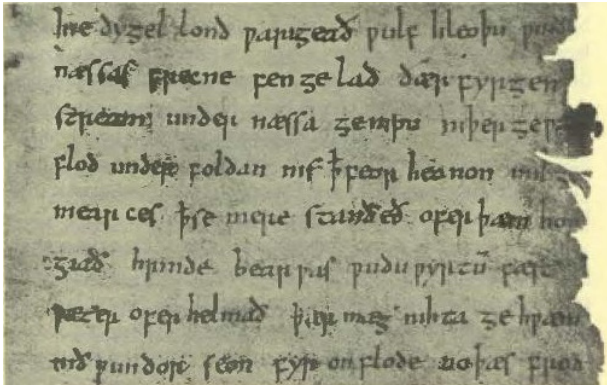 hie dygel lond ƿarigeað ƿulf hleoþu
næssas frecne fen ge lad ðær fyrgen
stream under næssa genipu niþer
flod under foldan nis ꝥ feor heanon mil
mearces ꝥ se mere standeð ofer þæm hon
giað hrinde bearƿas ƿudu ƿyrtū fæst
ƿæter ofer helmað þær mæg nihta ge hƿæm
nið ƿundor seon fyr onflode no þæs frod